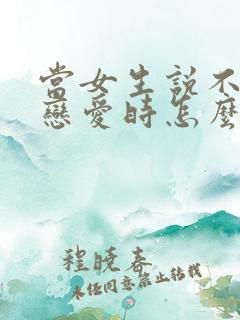 當女生說不
戀愛時怎麼
程曉春
未任同意禁止轉載